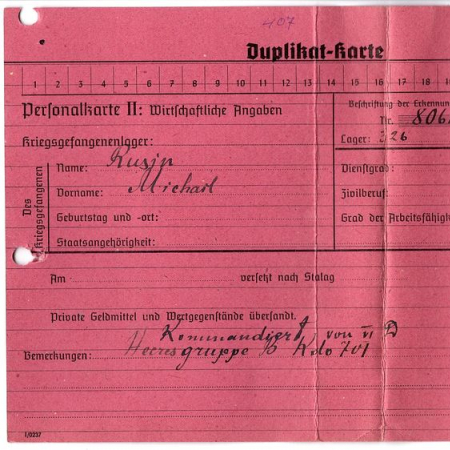 407
Duplikat-Karte
1 2 3 4 5 6 7 8 9 10 11 12 13 14 15 16 17 18
Personalkarte II: Wirtschaftliche Angaben
Beschriftung der Erkennun
Nr. 806
Kriegsgefangenenlager:
Lager: 326
Des Kriegsgefangenen
Name: Kusin
Dienstgrad:
Vorname: Michail
Zivilberuf:
Geburtstag und -ort:
Grad der Arbeitsfähigk
Staatsangehörigkeit:
Am versetzt nach Stalag
Private Geldmittel und Wertgegenstände übersandt.
Kommandiert von VI D
Bemerkungen: Heeresgruppe B Kdo 701
1/0237